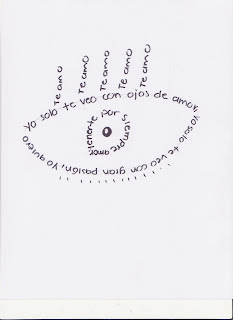 Te amo
Te amo
Te amo
Te amo
Te amo
Yo solo te veo con ojos de amor,
Yo solo te veo con gran pasión, Yo quiero
tenerte por siempre amor